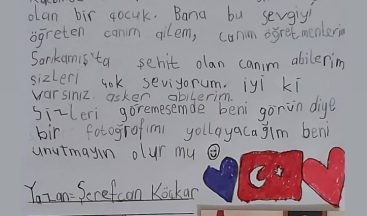 olan bir çocuk. Bana bu sevgiyi
öğreten canım ailem, canım öğretmenlerim
Sarıkamış'ta şehit olan canım abilerim
sizleri çok seviyorum. iyi ki
varsınız asker abilerim.
Sizleri göremesemde beni görün diye
bir fotoğrafımı yollayacağım beni
unutmayın olur mu
Yazan= Şerefcan Köşkar